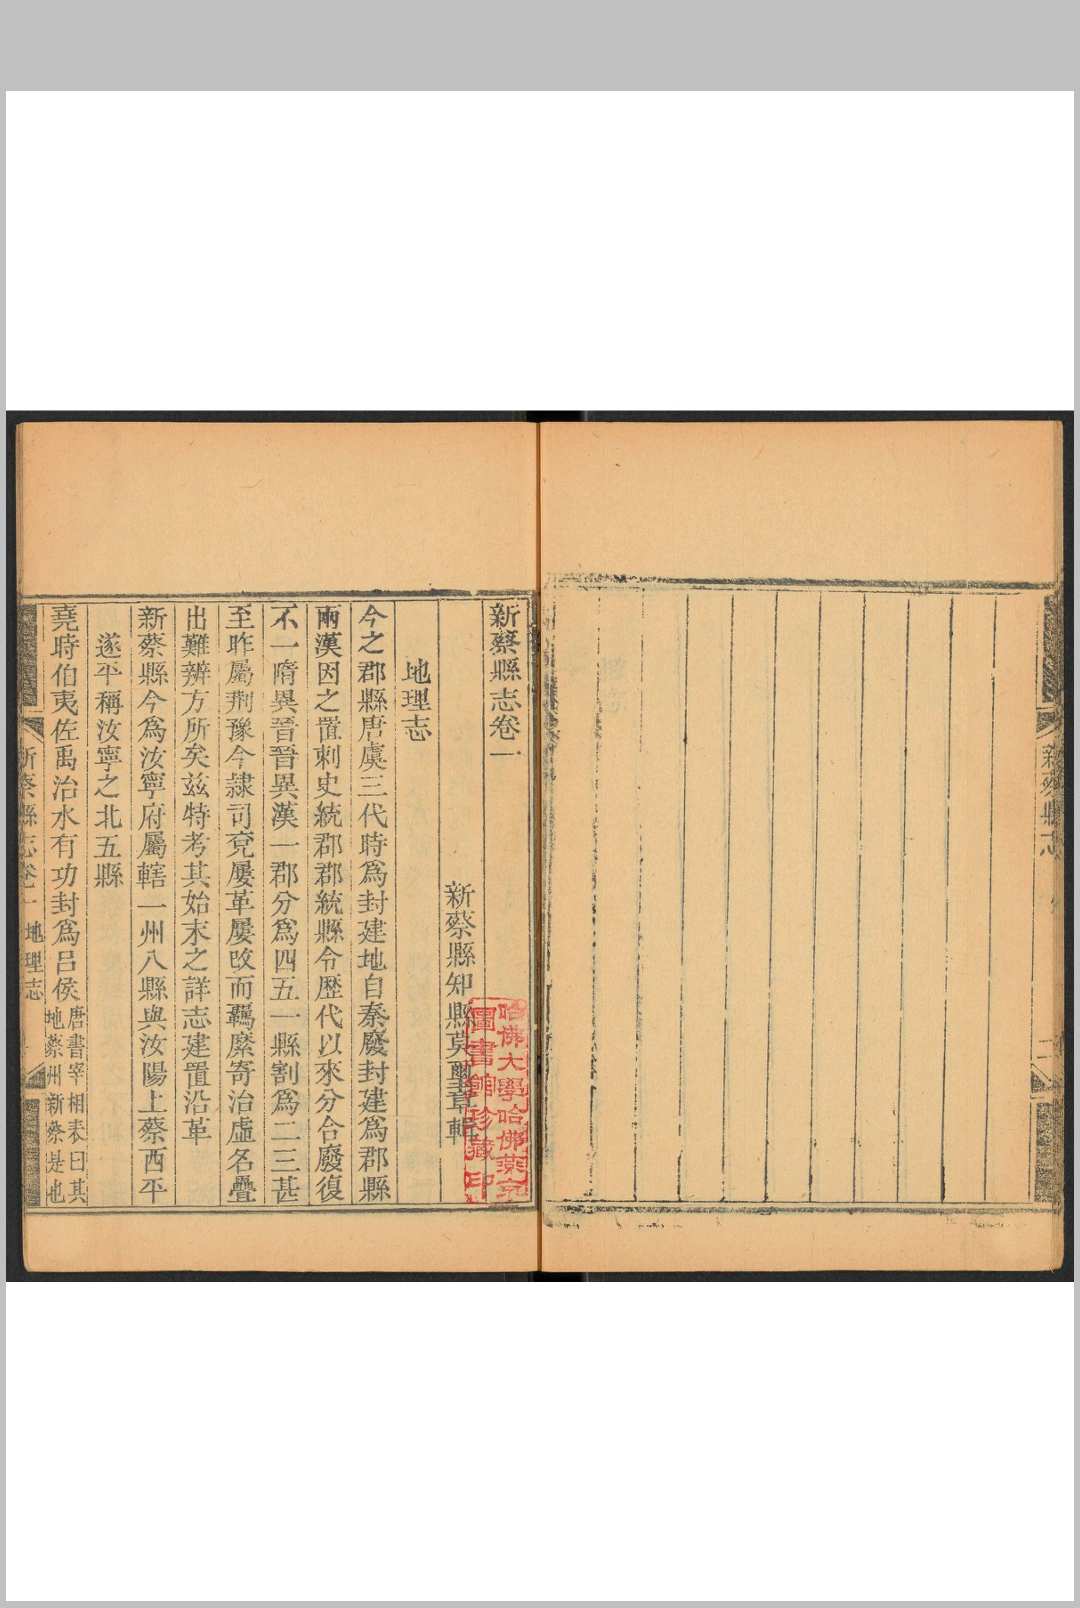 新蔡縣志
二
新蔡縣志卷一
新蔡縣知縣莫璽章輯
地理志
今之郡縣唐虞三代時爲封建地自秦廢封建爲郡縣
兩漢因之置刺史統郡郡統縣令歷代以來分合廢復
不一隋異晉晉異漢一郡分爲四五一縣割爲二三甚
至昨屬荆豫今隸司兗屢革屢改而羈縻寄治虛名疊
出難辨方所矣玆特考其始末之詳志建置沿革
新蔡縣今爲汝寧府屬轄一州八縣與汝陽上蔡西平
遂平稱汝寧之北五縣
堯時伯夷佐禹治水有功封爲呂侯唐書宰相表曰其
地蔡州新蔡是也
新蔡縣志卷一 地理志
哈佛大學哈佛燕京
圖書館珍藏印